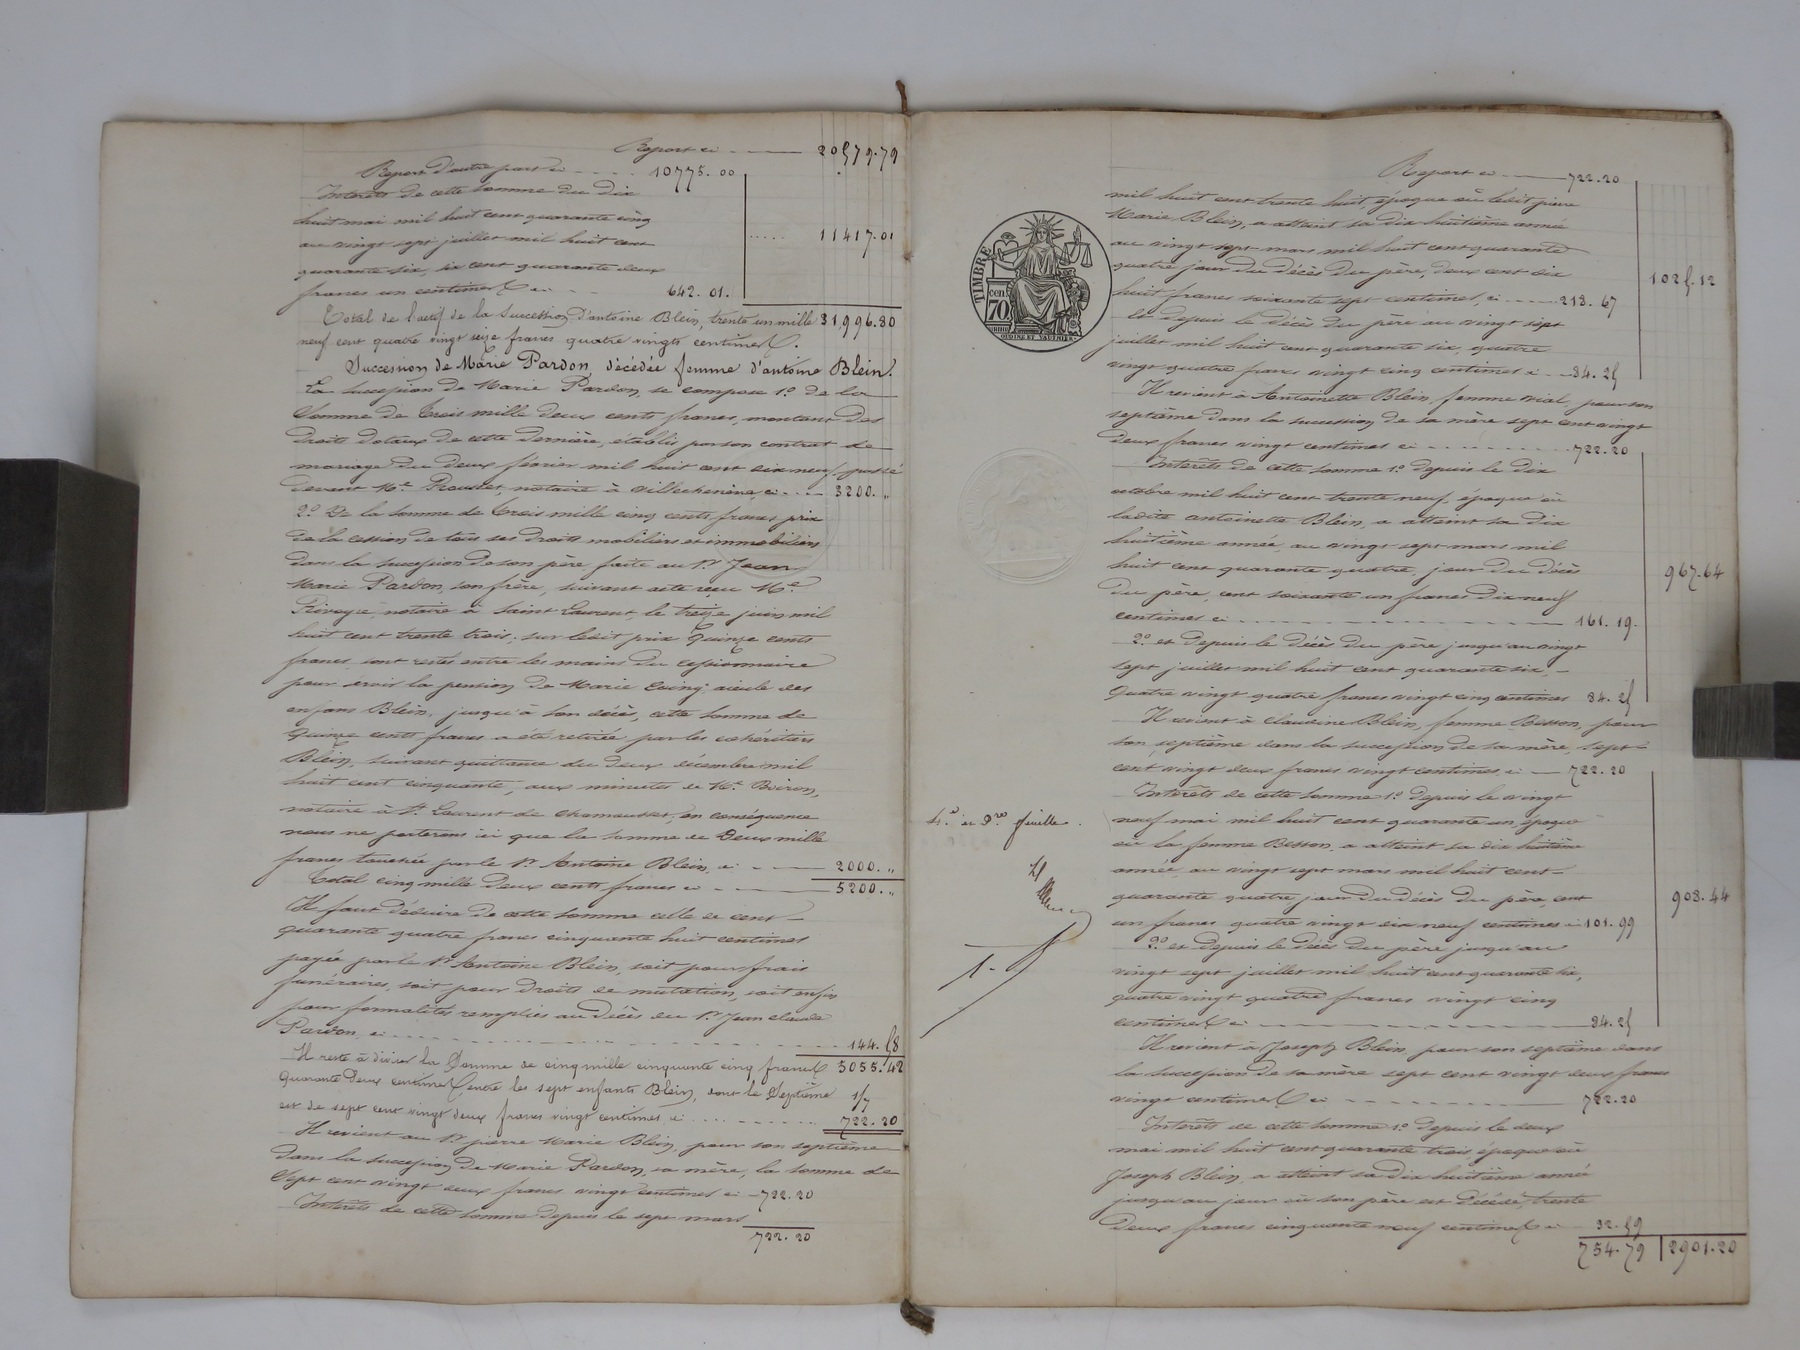 Report ci 20579.79
Report d'autre part ci 10775.00
Intérêts de cette somme du dix
huit mai mil huit cent quarante cinq
au vingt sept juillet mil huit cent 11417.01
quarante six, six cent quarante deux
francs un centimes ci 642.01.
Total de l'actif de la succession d'antoine Blein, trente un mille 31996.80
neuf cent quatre vingt seize francs quatre vingts centimes.
Succession de Marie Pardon, décédée femme d'antoine Blein.
La succession de Marie Pardon, se compose 1º de la
somme de trois mille deux cents francs, montant des
droits dotaux de cette dernière, établis par son contrat de
mariage du deux février mil huit cent dix neuf passé
devant Me Rousset, notaire à Villechenève, ci 3200. "
2º De la somme de trois mille cinq cents francs prix
de la cession de tous ses droits mobiliers et immobiliers
dans la succession de son père faite au Sr Jean
Marie Pardon, son frère, suivant acte reçu Me
notaire à Saint Laurent, le treize juin mil
huit cent trente trois; sur ledit prix quinze cents
francs sont restés entre les mains du cessionnaire
pour servir la pension de Marie aieule des
enfans Blein, jusqu'à son décès, cette somme de
quinze cents francs a été retirée par les cohéritiers
Blein, suivant quittance du deux décembre mil
huit cent cinquante, aux minutes de Me Boiron,
notaire à St Laurent de Chamousset, en conséquence
nous ne porterons ici que la somme de Deux mille
francs touchée par le Sr Antoine Blein, ci 2000. "
Total cinq mille deux cents francs ci 5200. "
Il faut déduire de cette somme celle de cent
quarante quatre francs cinquante huit centimes
payée par le Sr Antoine Blein, soit pour frais
funéraires, soit pour droits de mutation, soit enfin
pour formalités remplies au décès du Sr Jean Claude
Pardon, ci 144.58
Il reste à diviser la somme de cinq mille cinquante cinq francs 5055.42
quarante deux centimes, entre les sept enfants Blein, dont le septième 1/7
est de sept cent vingt deux francs vingt centimes ci 722.20
Il revient au Sr pierre Marie Blein, pour son septième
dans la succession de Marie Pardon, sa mère, la somme de
Sept cent vingt deux francs vingt centimes ci 722.20
Intérêts de cette somme depuis le sept mars
722.20
Report ci 722.20
mil huit cent trente huit, époque où ledit pierre
Marie Blein, a atteint sa dix huitième année
au vingt sept mars mil huit cent quarante
quatre jour du décès du père, deux cent dix 1025.12
huit francs soixante sept centimes, ci 218.67
et depuis le décès du père au vingt sept
juillet mil huit cent quarante six, quatre
vingt quatre francs vingt cinq centimes ci 84.25
TIMBRE
70 cen.
Il revient à Antoinette Blein, femme Vial, pour son
septième dans la succession de sa mère sept cent vingt
deux francs vingt centimes ci 722.20
Intérêts de cette somme 1º depuis le dix
octobre mil huit cent trente neuf, époque où
ladite antoinette Blein, a atteint sa dix
huitième année, au vingt sept mars mil
huit cent quarante quatre, jour du décès 967.64
du père, cent soixante un francs dix neuf
centimes ci 161.19.
2º et depuis le décès du père jusqu'au vingt
sept juillet mil huit cent quarante six,
quatre vingt quatre francs vingt cinq centimes 84.25
Il revient à Claudine Blein, femme Besson, pour
son septième dans la succession de sa mère, sept
cent vingt deux francs vingt centimes, ci 722.20
Intérêts de cette somme 1º depuis le vingt
4e et Dre feuille.
neuf mai mil huit cent quarante un, époque
où la femme Besson, a atteint sa dix huitième
année au vingt sept mars mil huit cent
quarante quatre jour du décès du père, cent 908.44
un francs quatre vingt dix neuf centimes ci 101.99
2º et depuis le décès du père jusqu'au
vingt sept juillet mil huit cent quarante six,
quatre vingt quatre francs vingt cinq
centimes ci 84.25
Il revient à Joseph Blein pour son septième dans
la succession de sa mère sept cent vingt deux francs
vingt centimes ci 722.20
Intérêts de cette somme 1º depuis le deux
mai mil huit cent quarante trois époque où
Joseph Blein, a atteint sa dix huitième année
jusqu'au jour où son père est décédé, trente
deux francs cinquante neuf centimes ci 32.59
754.79 2901.20